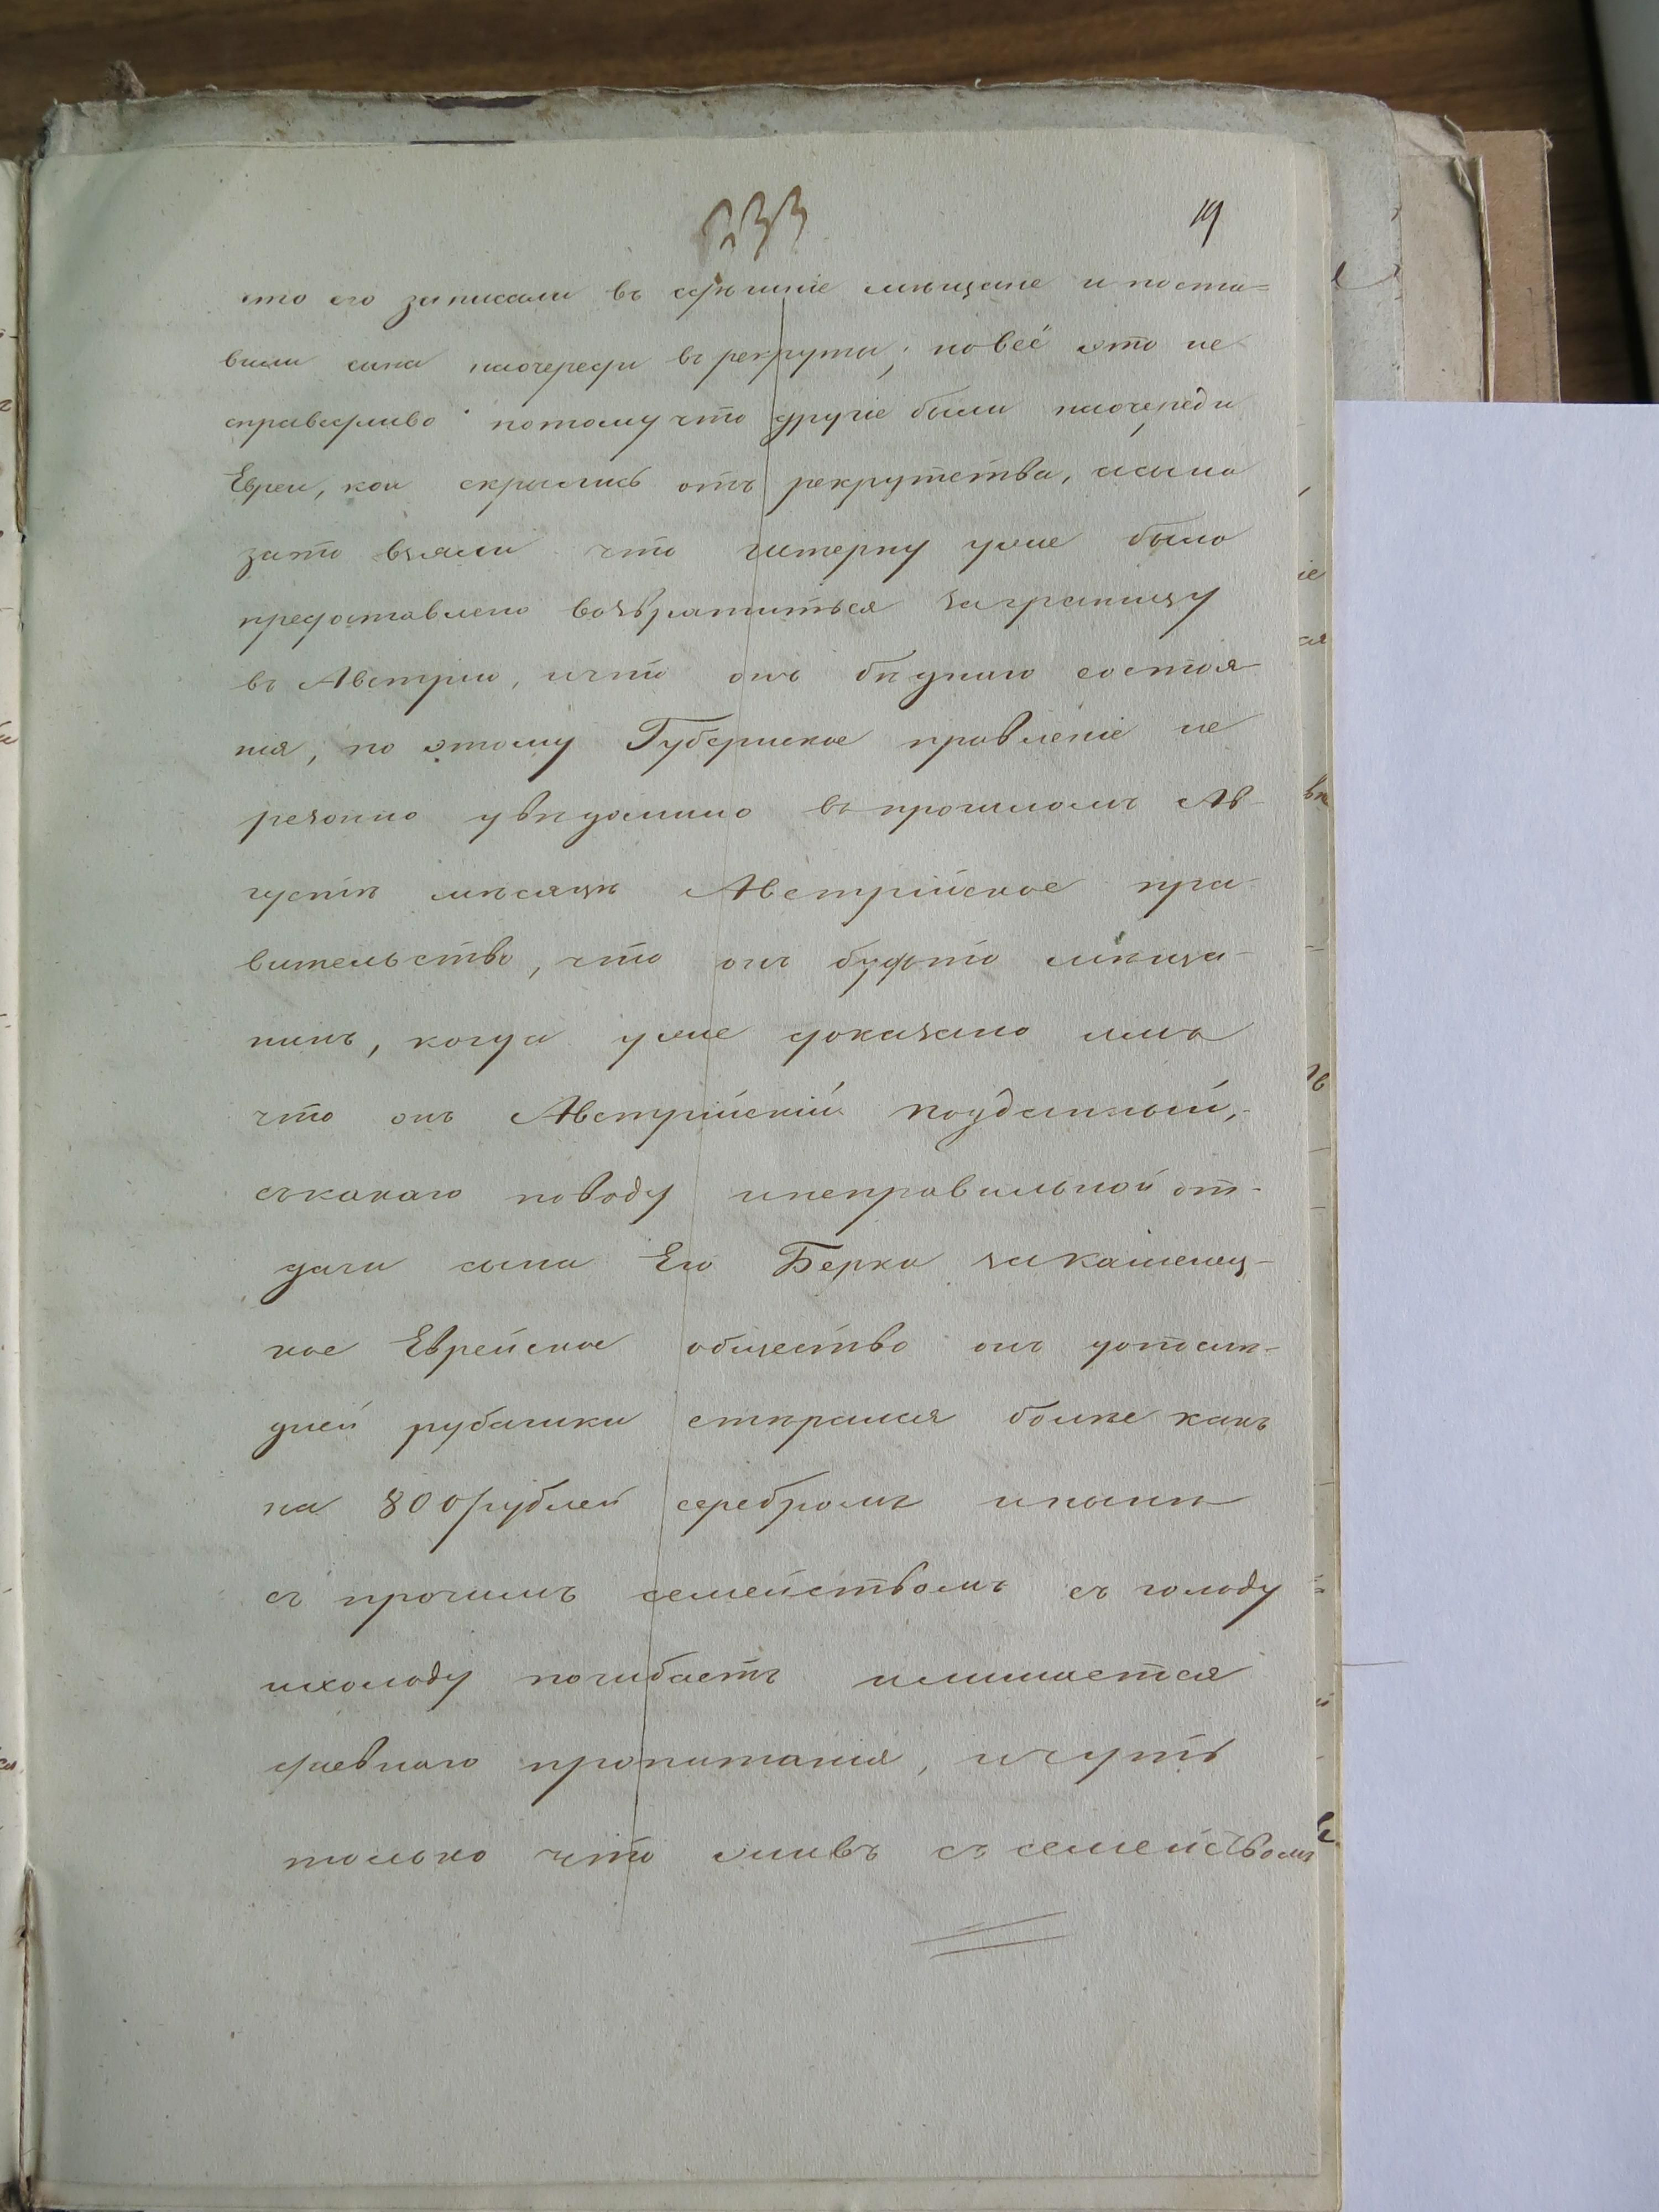 233
19
что его записали въ здѣшніе мѣщане и поста=
вили сына наочереди въ рекруты, но всё это не
справедливо потому что другіе были наочереди
Евреи, кои скрылись отъ рекрутства, асына
зато взяли что Штерну уже было
предоставлено возвратиться заграницу
въ Австрію, ичто онъ бѣднаго состоя-
нія, по этому Губернское правленіе не
резонно увѣдомило въ прошломъ Ав-
густѣ мѣсяцѣ Австрійское пра-
вительство, что онъ будьто мѣща-
нинъ, когда уже доказано имъ
что онъ Австрійскій подданный,
съкакаго поводу инеправильной от-
дачи сына Его Берка заКаменец-
кое Еврейское общество онъ допослѣ-
дней рубашки стпрался болѣе какъ
на 800 рублей серебромъ инынѣ
съ прочимъ семействомъ съ голоду
ихолоду погибаетъ илишается
дневнаго пропитанія, ичуть
только что живъ съ семействомъ